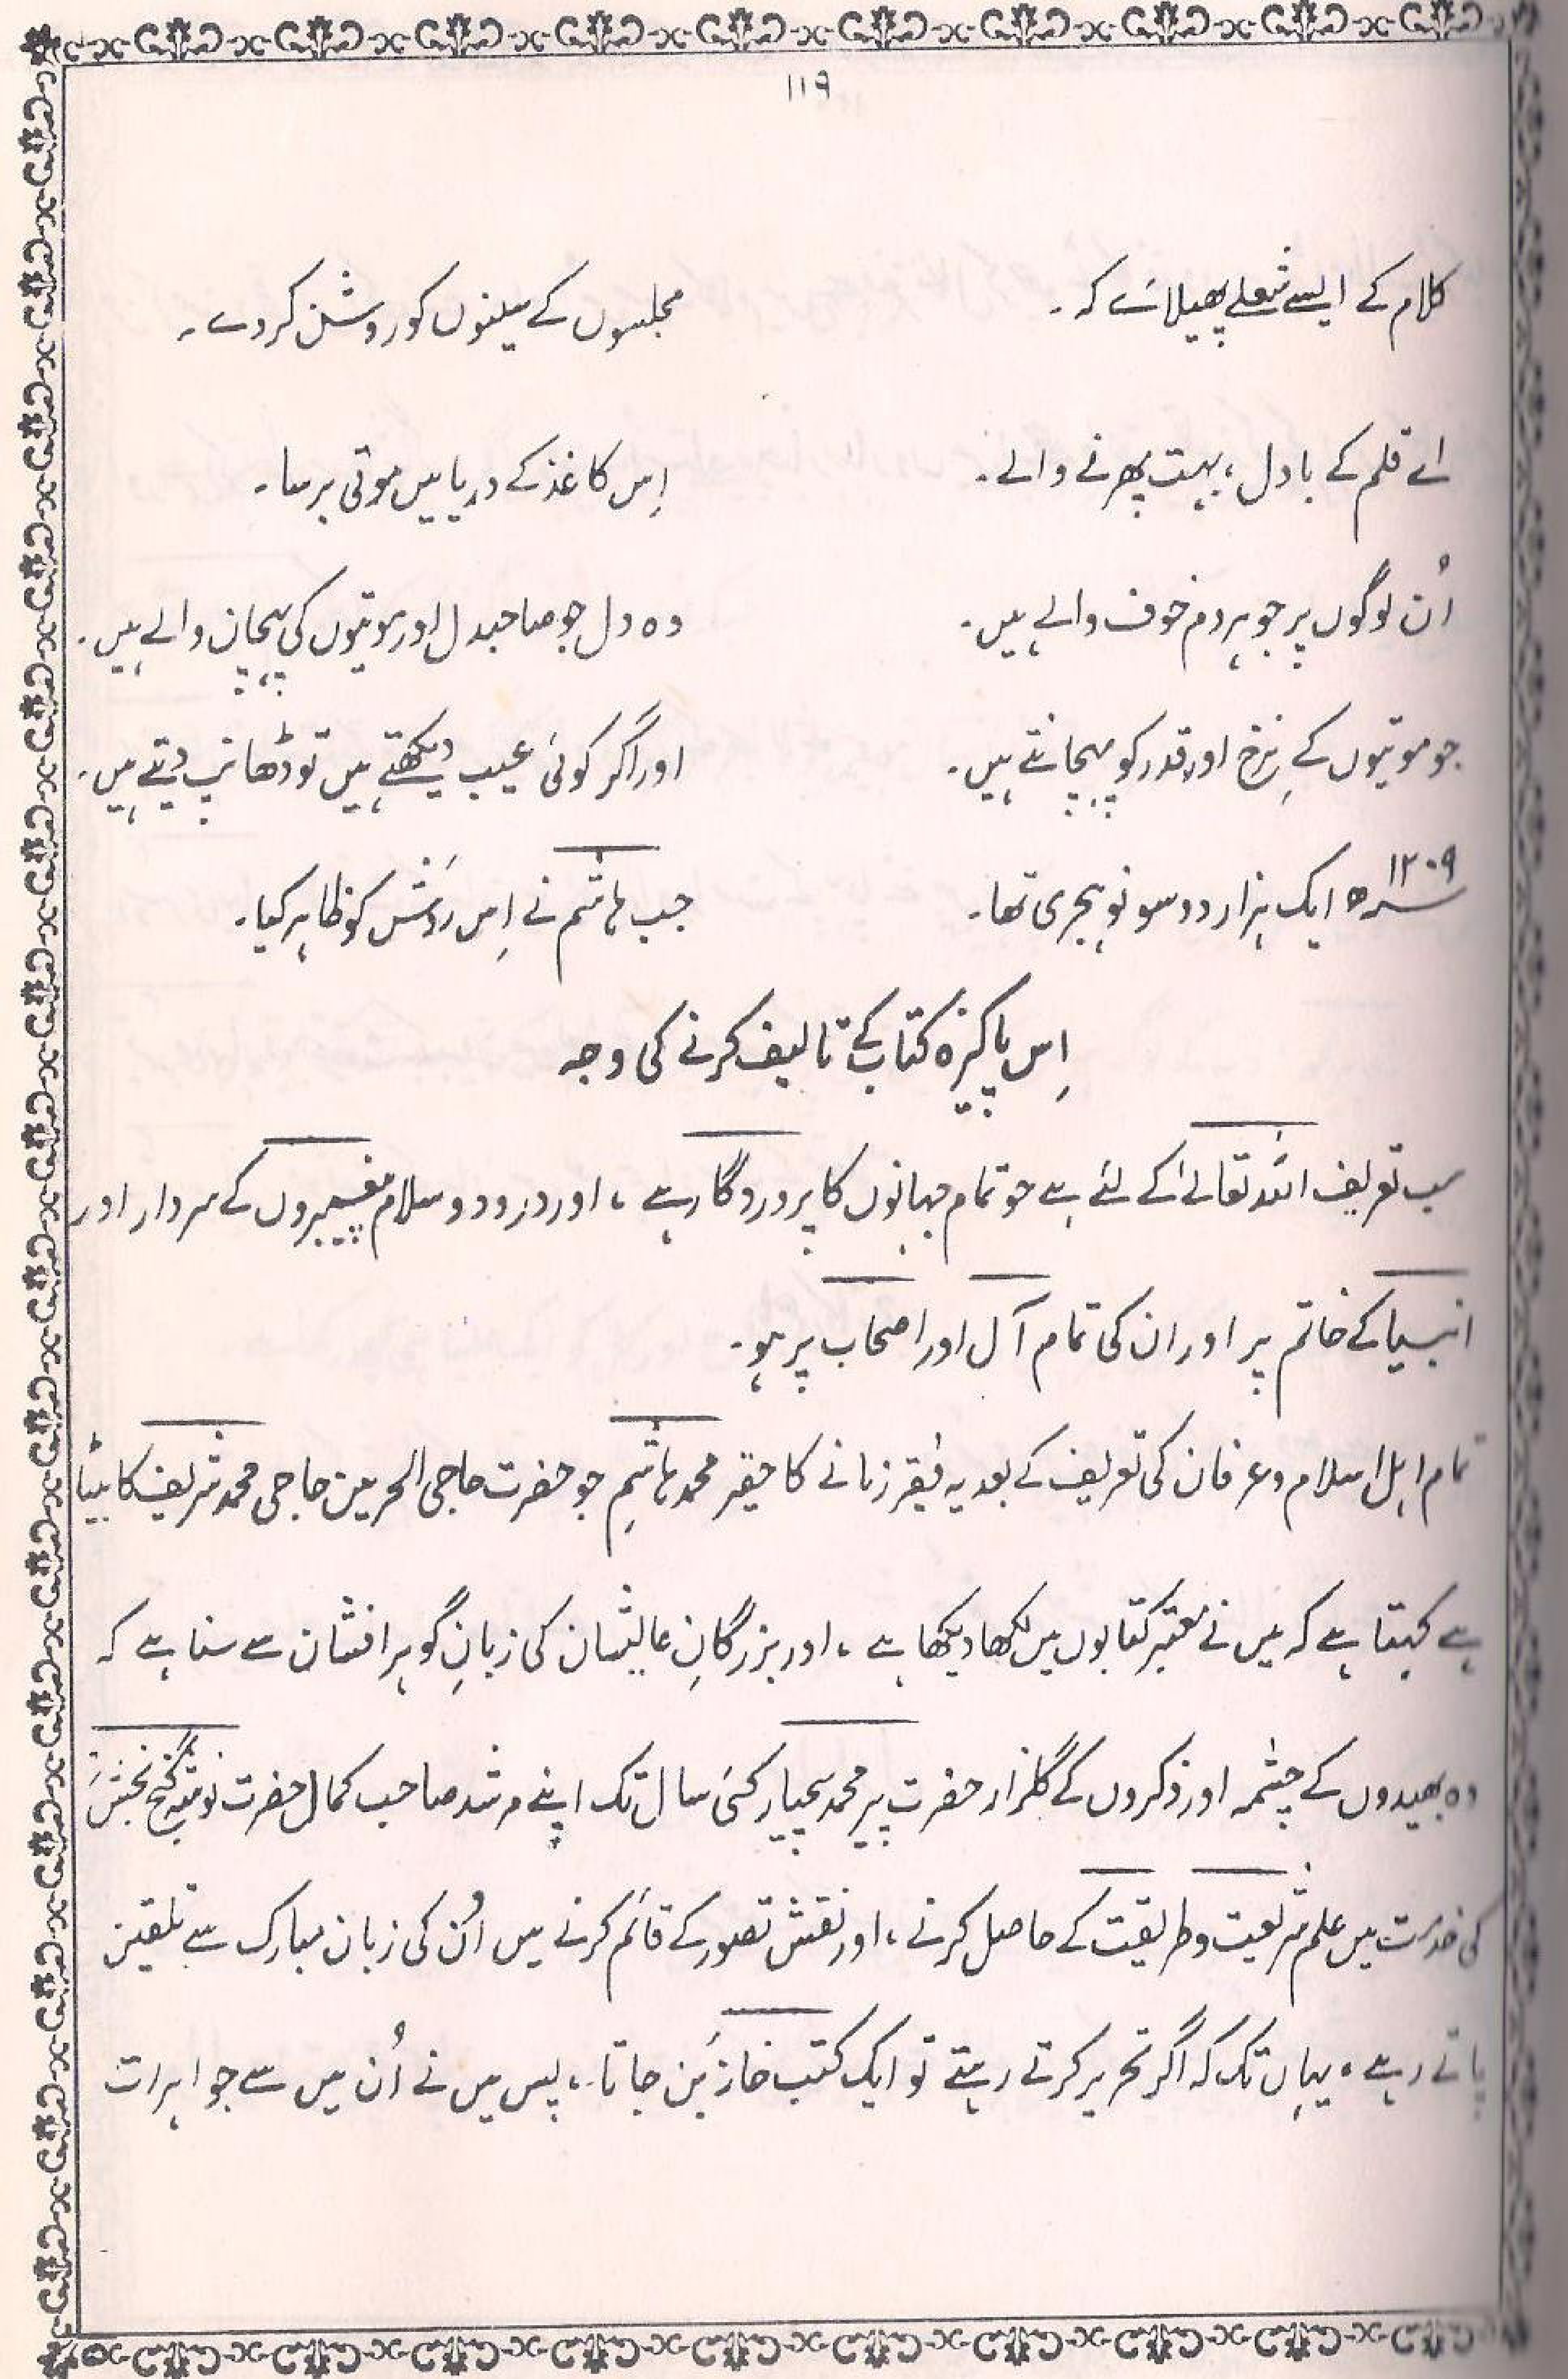 ۱۱۹
کلام کے ایسے شعلے پھیلائے کہ۔ مجلسوں کے سینوں کو روشن کر دے۔
اے قلم کے بادل، بہت پھرنے والے۔ اِس کاغذ کے دریا میں موتی برسا۔
اُن لوگوں پر جو ہر دم خوف والے ہیں۔ وہ دل جو صاحبدل اور موتیوں کی پہچان والے ہیں۔
جو موتیوں کے نِرخ اور قدر کو پہچانتے ہیں۔ اور اگر کوئی عیب دیکھتے ہیں تو ڈھانپ دیتے ہیں۔
۱۲۰۹ھ ایک ہزار دو سو نو ہجری تھا۔ جب ہاشم نے اِس رَوِش کو ظاہر کیا۔
اِس پاکیزہ کتاب کے تالیف کرنے کی وجہ
سب تعریف اللہ تعالےٰ کے لئے ہے جو تمام جہانوں کا پروردگار ہے، اور درود و سلام پیغمبروں کے سردار اور
انبیا کے خاتم پر اور ان کی تمام آل اور اصحاب پر ہو۔
تمام اہل اسلام و عرفان کی تعریف کے بعد یہ فقیر زمانے کا حقیر محمد ہاشم جو حضرت حاجی الحرمین حاجی محمد شریف کا بیٹا
ہے کہتا ہے کہ میں نے معتبر کتابوں میں لکھا دیکھا ہے، اور بزرگانِ عالیشان کی زبانِ گوہر افشان سے سنا ہے کہ
وہ بھیدوں کے چشمہ اور ذکروں کے گلزار حضرت پیر محمد سچیار کئی سال تک اپنے مرشد صاحب کمال حضرت نوشہ گنج بخشؒ
کی خدمت میں علم شریعت و طریقت کے حاصل کرنے، اور نقش تصور کے قائم کرنے میں اُن کی زبان مبارک سے تلقین
پاتے رہے، یہاں تک کہ اگر تحریر کرتے رہتے تو ایک کتب خانہ بَن جاتا، پس میں نے اُن میں سے جواہرات